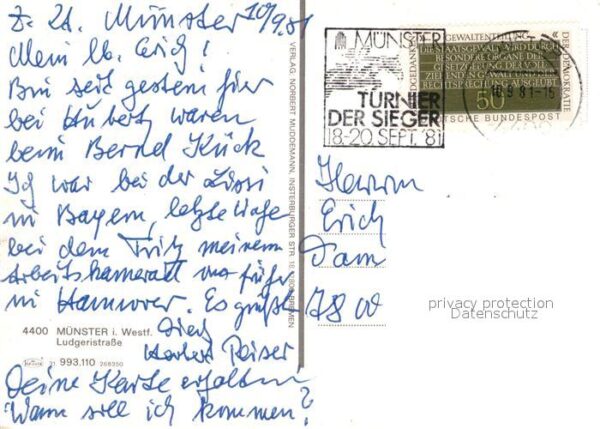 z. Zt. Münster 10/9.81
Mein lb. Erich!
Bin seit gestern hier
bei Hubert, waren
beim Bernd Kück
Ich war bei der Lissi
in Bayern, letzte Tage
bei dem Fritz meinem
Arbeitskamerad von früher
in Hannover. Es grüßt
Dich
Herbert Reiser
Deine Karte erhalten
Wann soll ich kommen?
4400 MÜNSTER i. Westf.
Ludgeristraße
21 993.110 268350
VERLAG NORBERT MUDDEMANN, INSTERBURGER STR. BREMEN
MÜNSTER
TURNIER
DER SIEGER
18-20. SEPT. '81
GEWALTENTEILUNG
DIE STAATSGEWALT WIRD DURCH
BESONDERE ORGANE DER
GESETZGEBUNG DER VOLL
ZIEHENDEN GEWALT UND DER
RECHTSPRECHUNG AUSGEÜBT
DER DEMOKRATIE
50
DEUTSCHE BUNDESPOST
9 81-15
Herrn
Erich
Dam
7800
privacy protection
Datenschutz